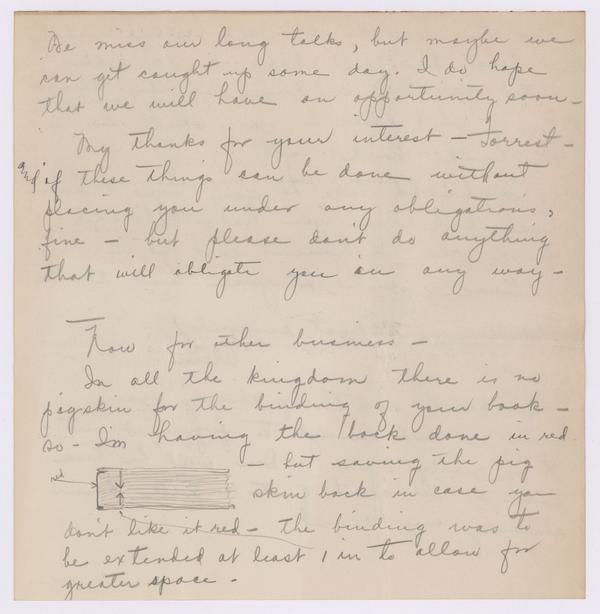 We miss our long talks, but maybe we
can get caught up some day. I do hope
that we will have an opportunity soon -
My thanks for your interest - Forrest -
and if these things can be done without
placing you under any obligations,
fine - but please don't do anything
that will obligate you in any way -
Now for other business -
In all the kingdom there is no
pigskin for the binding of your book -
so - I'm having the back done in red
- but saving the pig
red
skin back in case you
don't like it red - the binding was to
be extended at least 1 in to allow for
greater space -